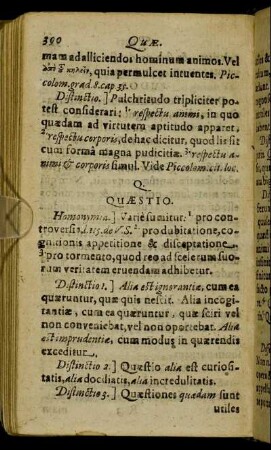 300 Quæ.
mam ad alliciendos hominum animos. Vel
quia permulcet intuentes. Pic-
colom. grad. 8. cap. 35.
Distinctio.] Pulchritudo tripliciter po-
test considerari: respectu animi, in quo
quædam ad virtutem aptitudo apparet,
respectu corporis, de hac dicitur, quod lis sit
cum forma magna pudicitiæ. respectu a-
nimi & corporis simul. Vide Piccolom. cit. loc.
Q.
QUÆSTIO.
Homonymia.] Variè sumitur. 1 pro con-
troversiâ, 2 pro dubitatione, co-
gnitionis appetitione & disceptatione
pro tormento, quod reo ad scelerum suo-
rum veritatem eruendam adhibetur.
Distinctio 1.] Alia est ignorantiæ, cum ea
quæruntur, quæ quis nescit. Alia incogi-
tantiæ, cum ea quæruntur, quæ sciri vel
non conveniebat, vel non oportebat. Alia
est imprudentiæ, cum modus in quærendis
exceditur.
Distinctio 2.] Quæstio alia est curiosi-
tatis, alia dociliatis, alia incredulitatis.
Distinctio 3.] Quæstiones quædam sunt
utiles